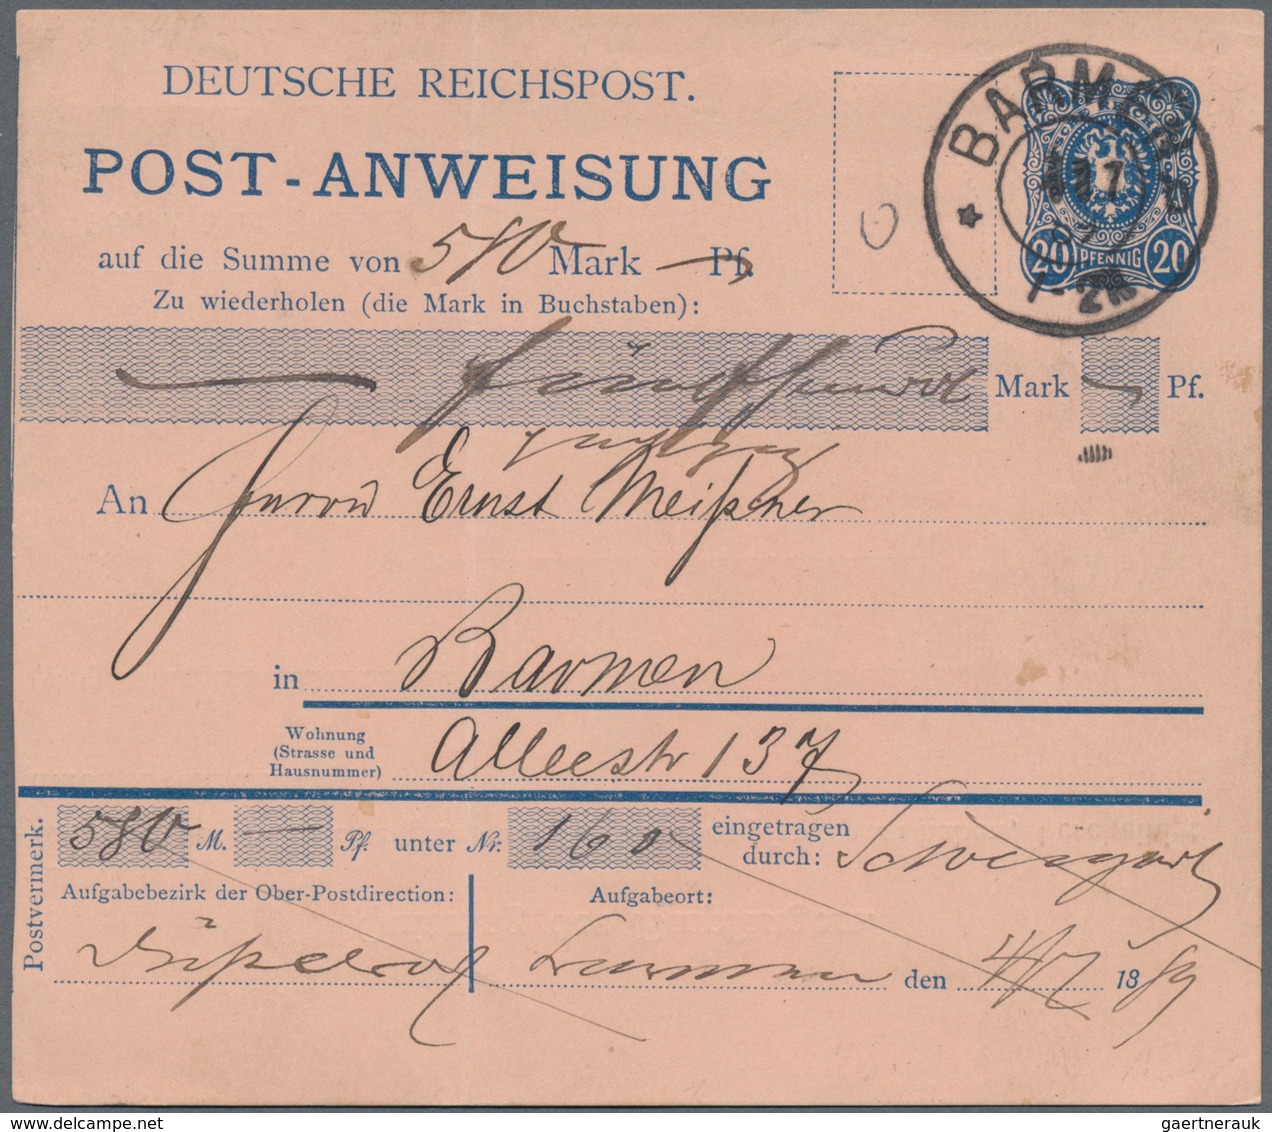 DEUTSCHE REICHSPOST.
POST-ANWEISUNG
auf die Summe von 580 Mark — Pf.
Zu wiederholen (die Mark in Buchstaben):
fünfhundert Mark — Pf.
achtzig
An Herrn Ernst Meißner
in Barmen
Wohnung
(Strasse und
Hausnummer)
Alleestr 137
Postvermerk.
580 M. — Pf. unter Nr. 160 eingetragen
durch:
Aufgabebezirk der Ober-Postdirection:
Aufgabeort:
Düsseldorf Barmen den 4/7 1889
BARMEN
7
1-2N
20 PFENNIG 20
gaertnerauk